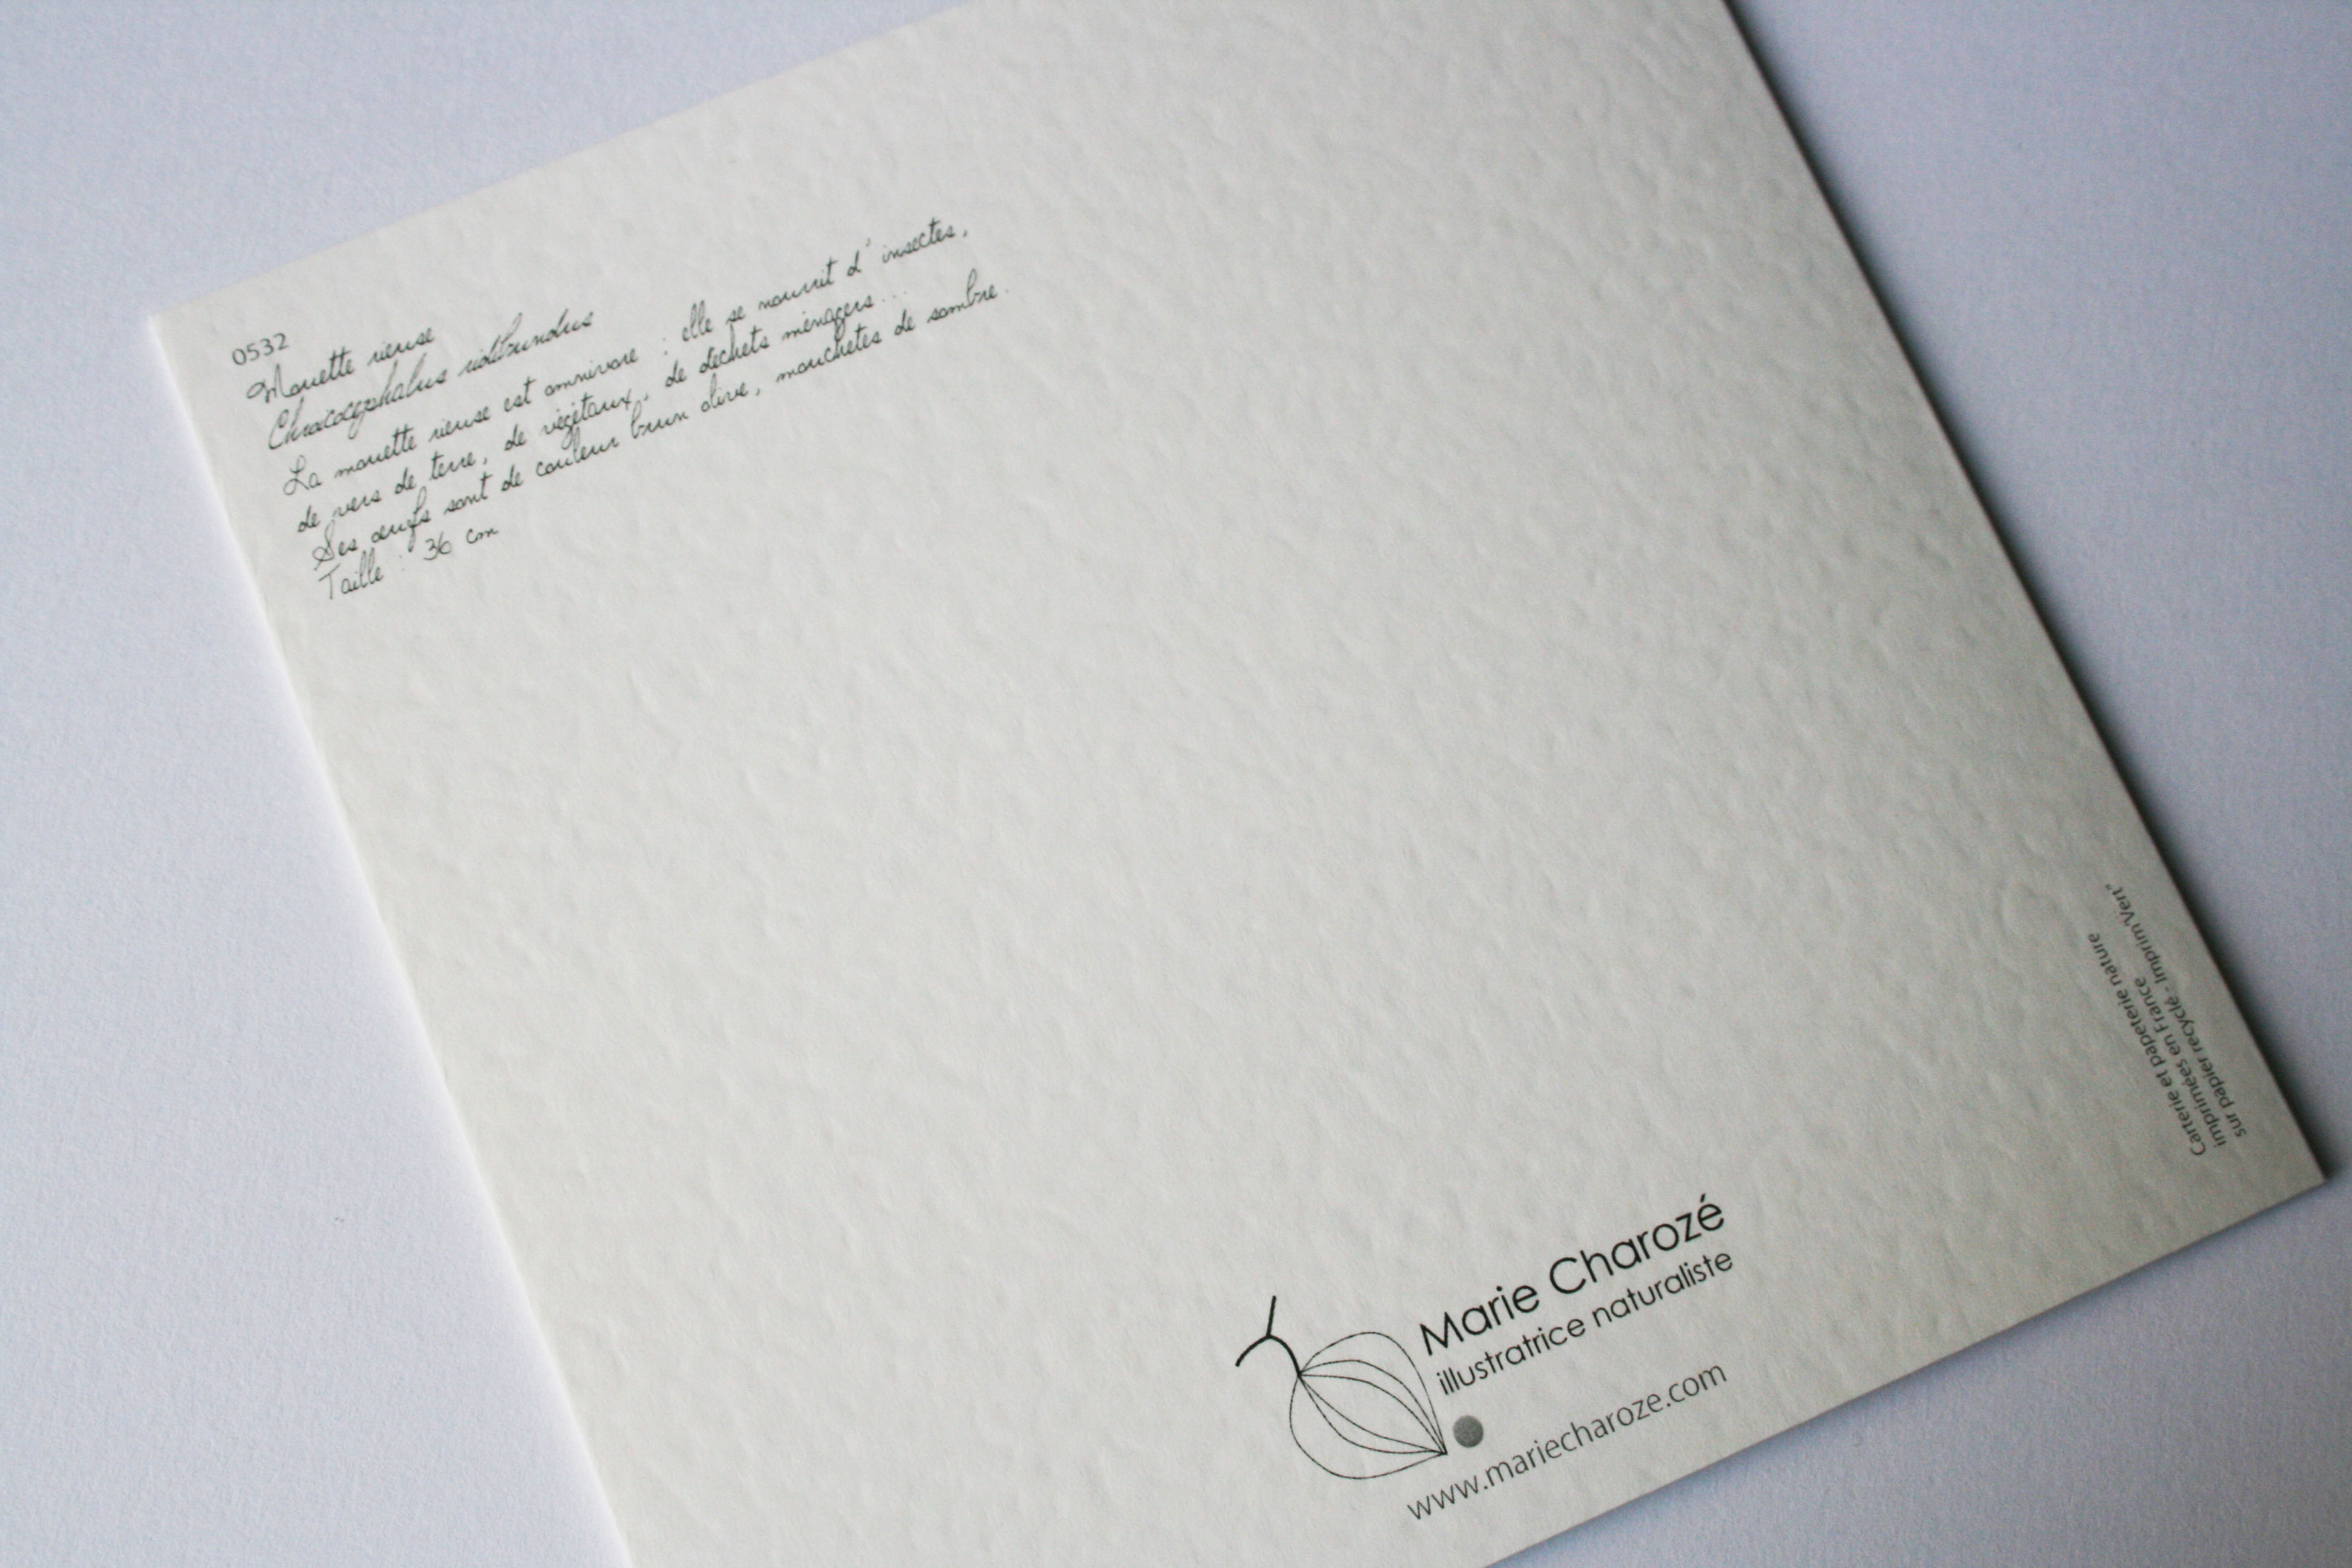 0532
Mouette rieuse
Chroicocephalus ridibundus
La mouette rieuse est omnivore : elle se nourrit d'insectes,
de vers de terre, de végétaux, de déchets ménagers...
Ses œufs sont de couleur brun olive, mouchetés de sombre.
Taille : 36 cm
Marie Charozé
illustratrice naturaliste
www.mariecharoze.com
Carterie et papeterie nature
imprimées en France
sur papier recyclé - Imprim'Vert®